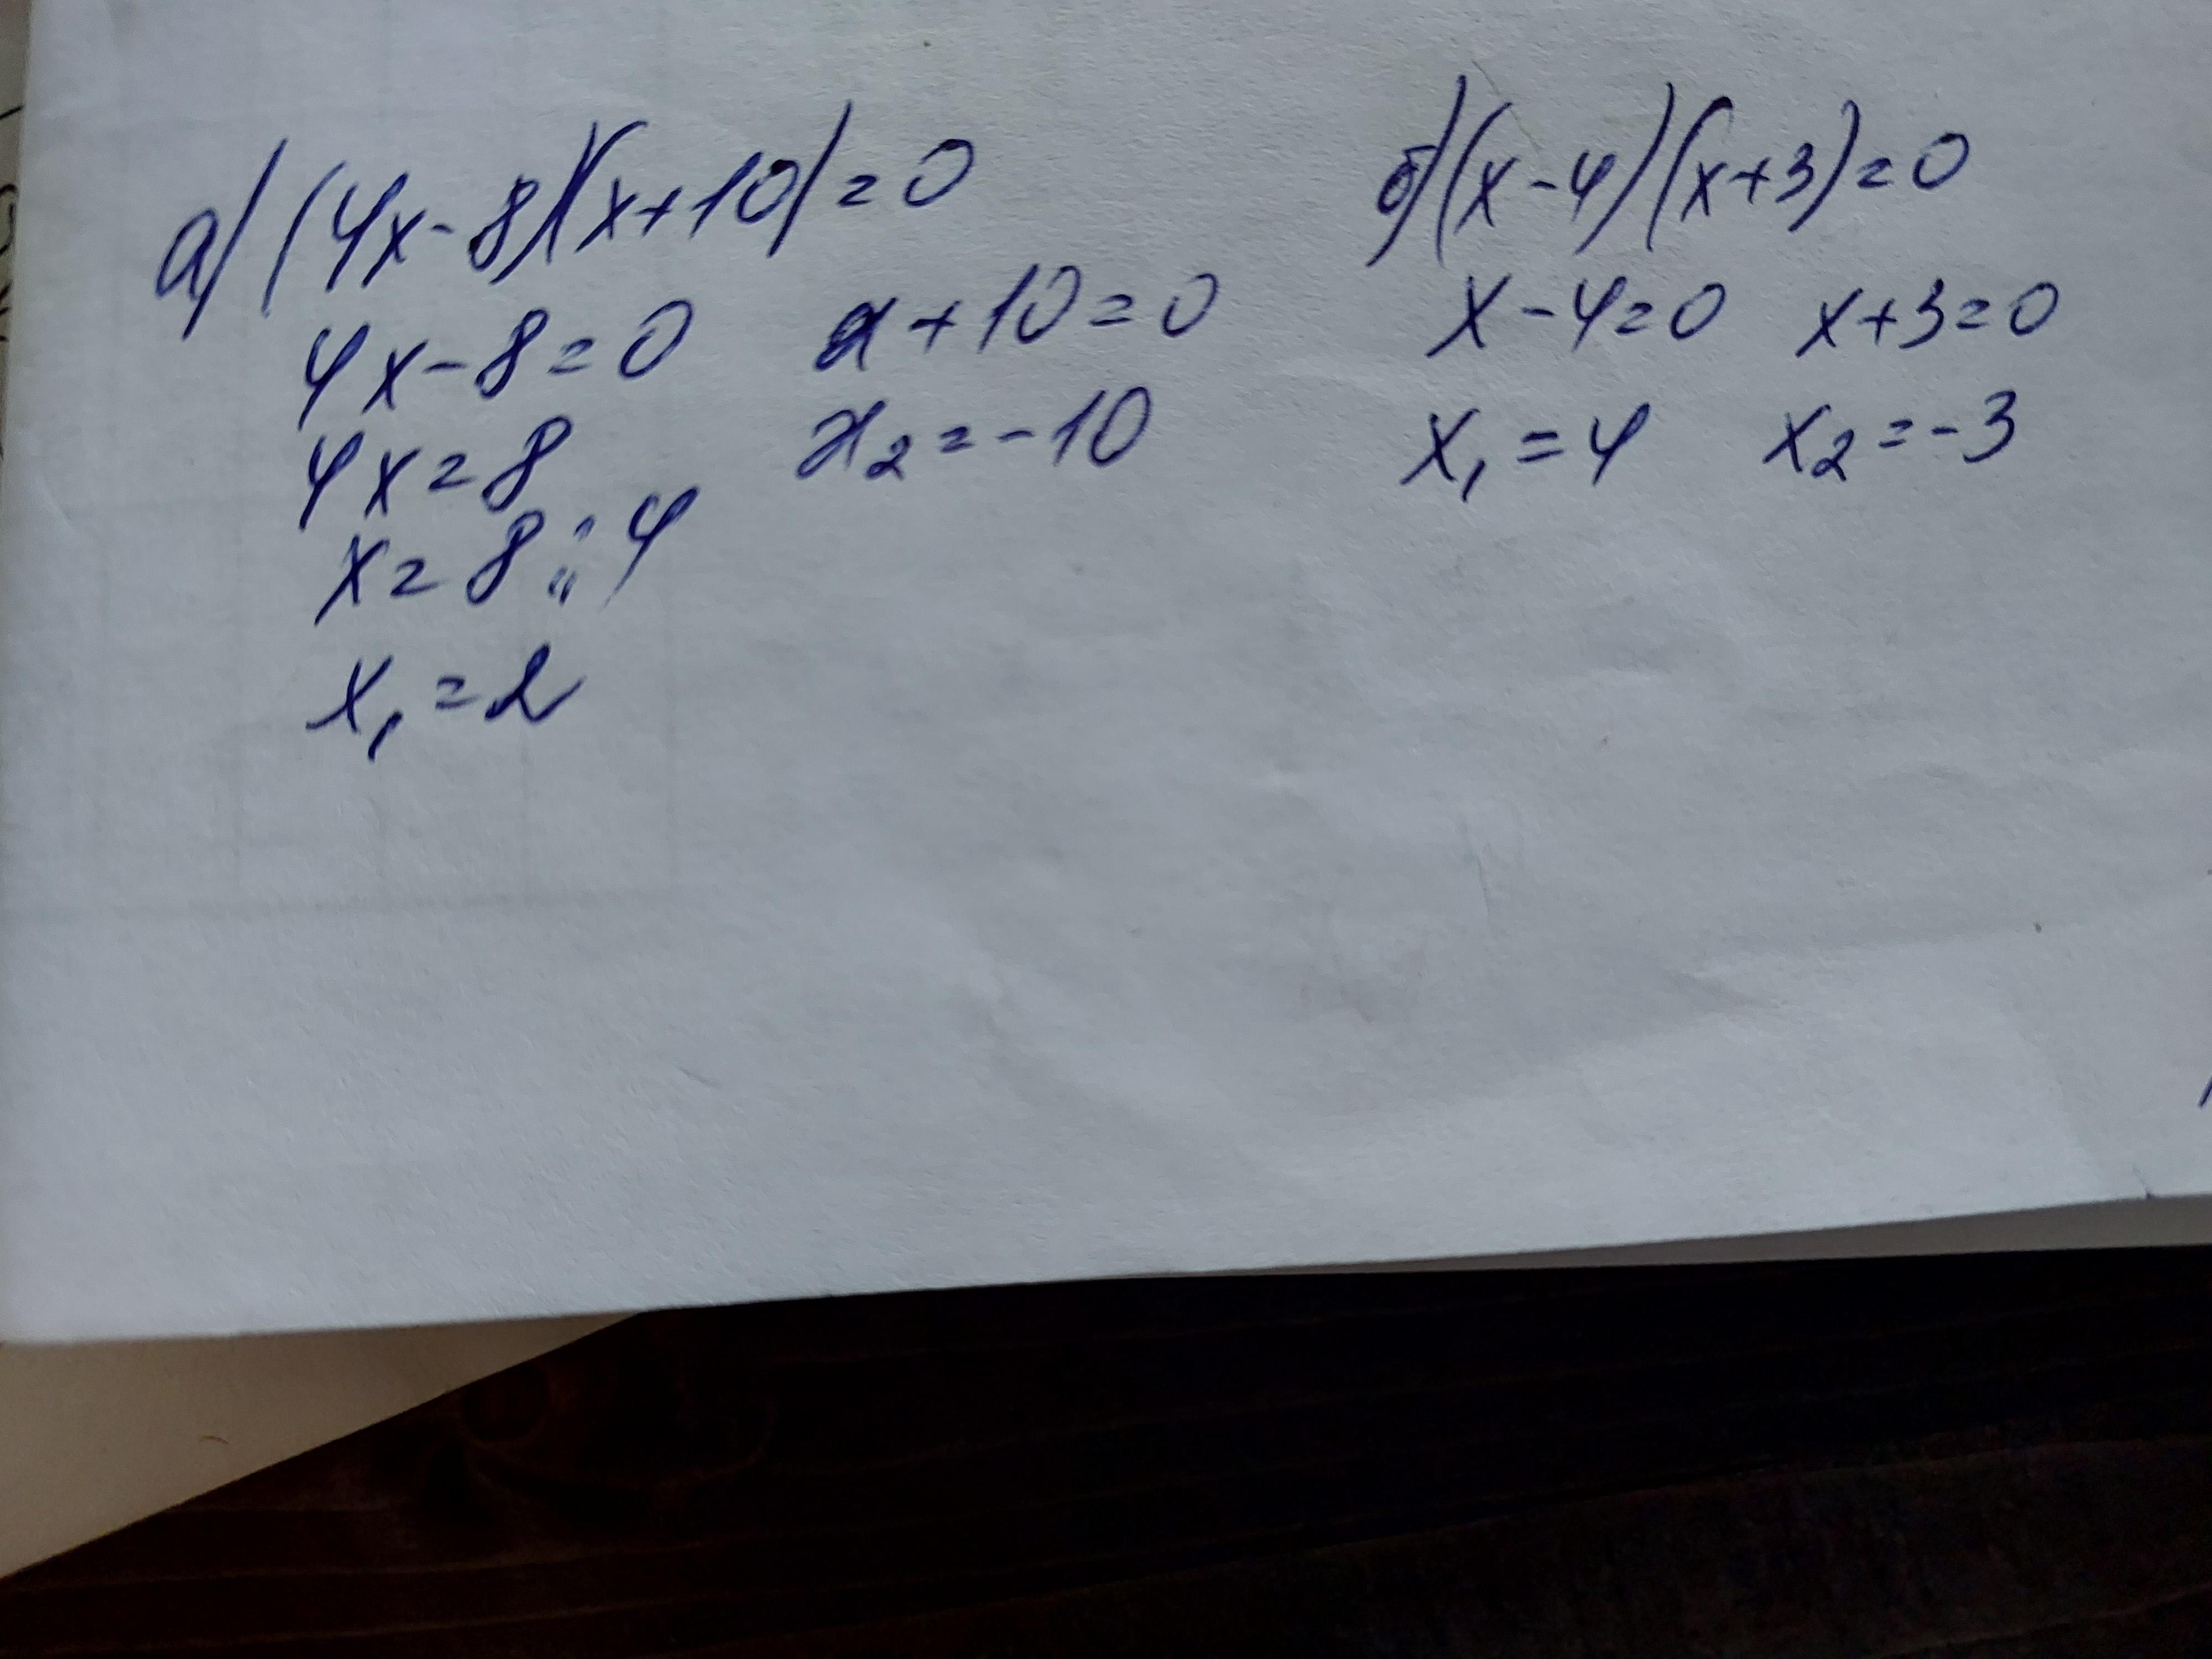 а) (4x-8)(x+10)=0
4x-8=0 x+10=0
4x=8 x₂=-10
x=8:4
x₁=2
б) (x-4)(x+3)=0
x-4=0 x+3=0
x₁=4 x₂=-3